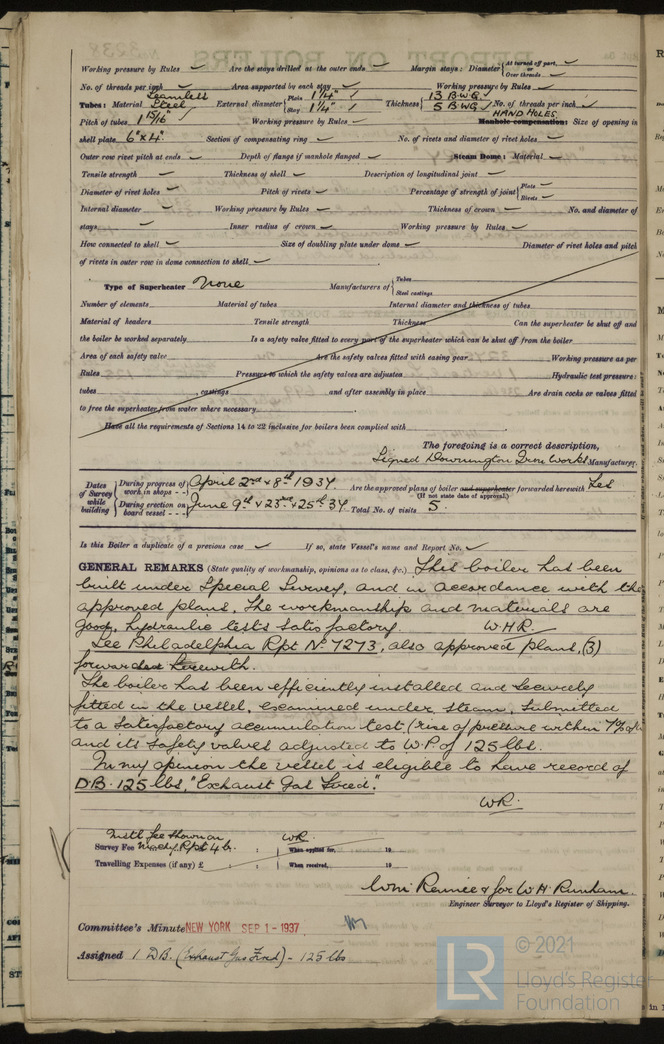 Working pressure by Rules ✓ Are the stays drilled at the outer ends ✓ Margin stays: Diameter { At turned off part, ✓ or Over threads ✓
No. of threads per inch ✓ Area supported by each stay ✓ Working pressure by Rules ✓
Tubes: Material Seamless Steel External diameter { Plain 1 1/4" Stay 1 1/4" Thickness { 13 B.W.G. 5 B.W.G. No. of threads per inch ✓
Pitch of tubes 1 15/16" Working pressure by Rules ✓ Manhole compensation: HAND HOLES. Size of opening in
shell plate 6" x 4" Section of compensating ring ✓ No. of rivets and diameter of rivet holes ✓
Outer row rivet pitch at ends ✓ Depth of flange if manhole flanged ✓ Steam Dome: Material ✓
Tensile strength ✓ Thickness of shell ✓ Description of longitudinal joint ✓
Diameter of rivet holes ✓ Pitch of rivets ✓ Percentage of strength of joint { Plate ✓ Rivets ✓
Internal diameter ✓ Working pressure by Rules ✓ Thickness of crown ✓ No. and diameter of
stays ✓ Inner radius of crown ✓ Working pressure by Rules ✓
How connected to shell ✓ Size of doubling plate under dome ✓ Diameter of rivet holes and pitch
of rivets in outer row in dome connection to shell ✓
Type of Superheater None Manufacturers of { Tubes Steel castings
Number of elements Material of tubes Internal diameter and thickness of tubes
Material of headers Tensile strength Thickness Can the superheater be shut off and
the boiler be worked separately Is a safety valve fitted to every part of the superheater which can be shut off from the boiler
Area of each safety valve Are the safety valves fitted with easing gear Working pressure as per
Rules Pressure to which the safety valves are adjusted Hydraulic test pressure:
tubes castings and after assembly in place Are drain cocks or valves fitted
to free the superheater from water where necessary
Have all the requirements of Sections 14 to 22 inclusive for boilers been complied with
The foregoing is a correct description,
Signed Downington Iron Works Manufacturer.
Dates of Survey while building { During progress of work in shops - - April 2nd & 8th 1937 Are the approved plans of boiler and superheater forwarded herewith Yes
(If not state date of approval.)
During erection on board vessel - - - June 9th & 23rd & 25th 37 Total No. of visits 5.
Is this Boiler a duplicate of a previous case ✓ If so, state Vessel's name and Report No. ✓
GENERAL REMARKS (State quality of workmanship, opinions as to class, &c.) This boiler has been
built under Special Survey, and in accordance with the
approved plans. The workmanship and materials are
good, hydraulic tests satisfactory. W.H.R.
See Philadelphia Rpt No 7273, also approved plans, (3)
forwarded herewith.
The boiler has been efficiently installed and securely
fitted in the vessel, examined under steam, submitted
to a satisfactory accumulation test, (rise of pressure within 7% of
and its safety valves adjusted to W.P. of 125 lbs.
In my opinion the vessel is eligible to have record of
D.B. 125 lbs, "Exhaust Gas Fired".
WR.
Instl fee shown on WR.
Survey Fee Rpt 4b. : : When applied for, 19
Travelling Expenses (if any) £ : : When received, 19
Wm Rennie & for W H Runham.
Engineer Surveyor to Lloyd's Register of Shipping.
Committee's Minute NEW YORK SEP 1 - 1937
Assigned 1 D.B. (Exhaust Gas Fired) - 125 lbs
LR © 2021
Lloyd's Register
Foundation